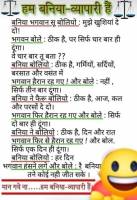 हम बनिया-व्यापारी हैं
बनिया भगवान सू बोलियो : मुझे खुशियां दे
दो!
भगवान बोले : ठीक है, पर सिर्फ चार बार ही
दूंगा।
वे चार बार तू बता ??
बनिया बोलियो : ठीक है, गर्मियों, सर्दियों,
बरसात और वसंत में
भगवान हैरान रह गए ! और बोले : नहीं
सिर्फ तीन बार दूंगा।
बनिया ने फेर बोलियो : ठीक है, आज, कल
और परसों दे दो।
भगवान फिर हैरान रह गए और बोले : सिर्फ
दो बार ही दूंगा।
बनिया बोलियो : ठीक है, दिन और रात
भगवान फिर से हैरान रह गए ! और बोल,
सिर्फ एक दिन ही दूंगा।
बनिया बोलियो : हर दिन
भगवान हंसने लगे और बोले : रै बनिया
तने कोई नहीं जीत सके
मान गये ना.....हम बनिया-व्यापारी हैं